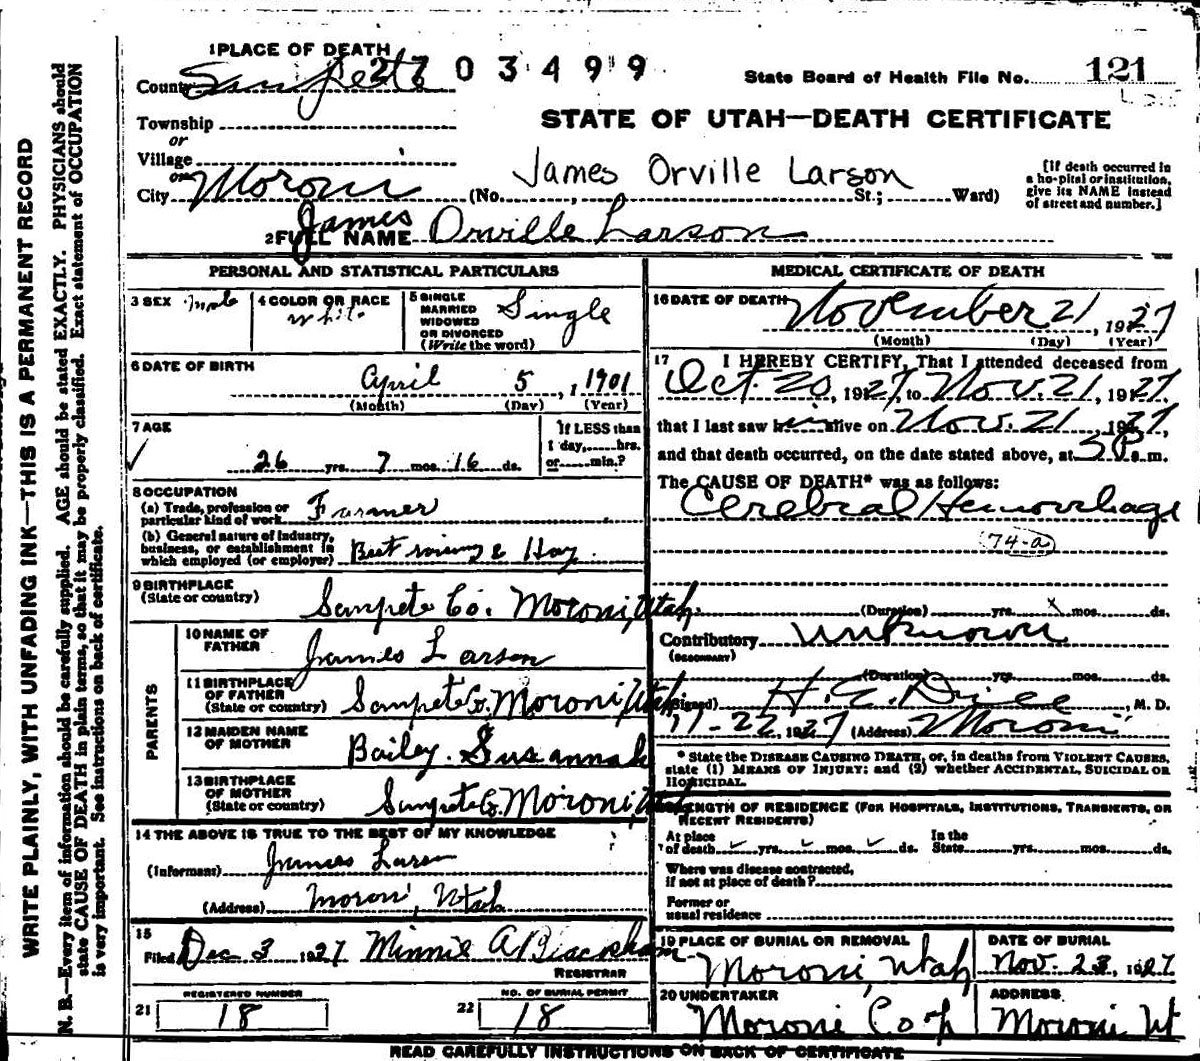 WRITE PLAINLY, WITH UNFADING INK—THIS IS A PERMANENT RECORD
N. B.—Every item of information should be carefully supplied. AGE should be stated EXACTLY. PHYSICIANS should
state CAUSE OF DEATH in plain terms, so that it may be properly classified. Exact statement of OCCUPATION
is very important. See instructions on back of certificate.
1 PLACE OF DEATH
2703499
State Board of Health File No. 121
County Sanpete
STATE OF UTAH—DEATH CERTIFICATE
Township
or
Village
or
City Moroni (No. St.; Ward)
James Orville Larson
[If death occurred in
a hospital or institution,
give its NAME instead
of street and number.]
2 FULL NAME James Orville Larson
PERSONAL AND STATISTICAL PARTICULARS
3 SEX Male
4 COLOR OR RACE
White
5 SINGLE
MARRIED
WIDOWED
OR DIVORCED
(Write the word)
Single
6 DATE OF BIRTH
April 5, 1901
(Month) (Day) (Year)
7 AGE
26 yrs. 7 mos. 16 ds.
If LESS than
1 day, hrs.
or min.?
8 OCCUPATION
(a) Trade, profession or
particular kind of work Farmer
(b) General nature of industry,
business, or establishment in
which employed (or employer) Beet raising & Hay.
9 BIRTHPLACE
(State or country) Sanpete Co. Moroni, Utah
PARENTS
10 NAME OF
FATHER James Larson
11 BIRTHPLACE
OF FATHER
(State or country) Sanpete Co. Moroni, Utah
12 MAIDEN NAME
OF MOTHER Bailey. Susannah
13 BIRTHPLACE
OF MOTHER
(State or country) Sanpete Co. Moroni, Utah
14 THE ABOVE IS TRUE TO THE BEST OF MY KNOWLEDGE
(Informant) James Larsen
(Address) Moroni, Utah
15
Filed Dec 3 1927 Minnie A
REGISTRAR
21 REGISTERED NUMBER
18
22 NO. OF BURIAL PERMIT
18
MEDICAL CERTIFICATE OF DEATH
16 DATE OF DEATH November 21, 1927
(Month) (Day) (Year)
17 I HEREBY CERTIFY, That I attended deceased from
Oct. 20, 1927, to Nov. 21, 1927.
that I last saw him alive on Nov. 21, 1927,
and that death occurred, on the date stated above, at 3 P.m.
The CAUSE OF DEATH* was as follows:
Cerebral Hemorrhage
74-a
(Duration) yrs. x mos. ds.
Contributory unknown
(SECONDARY)
(Duration) yrs. mos. ds.
(Signed) H. E. , M. D.
11-22, 1927 (Address) Moroni
* State the DISEASE CAUSING DEATH, or, in deaths from VIOLENT CAUSES,
state (1) MEANS OF INJURY; and (2) whether ACCIDENTAL, SUICIDAL OR
HOMICIDAL.
LENGTH OF RESIDENCE (FOR HOSPITALS, INSTITUTIONS, TRANSIENTS, OR
RECENT RESIDENTS)
At place
of death yrs. mos. ds.
In the
State yrs. mos. ds.
Where was disease contracted,
if not at place of death?
Former or
usual residence
19 PLACE OF BURIAL OR REMOVAL
Moroni, Utah
DATE OF BURIAL
Nov. 23, 1927
20 UNDERTAKER
Moroni Co op
ADDRESS
Moroni Ut
READ CAREFULLY INSTRUCTIONS ON BACK OF CERTIFICATE